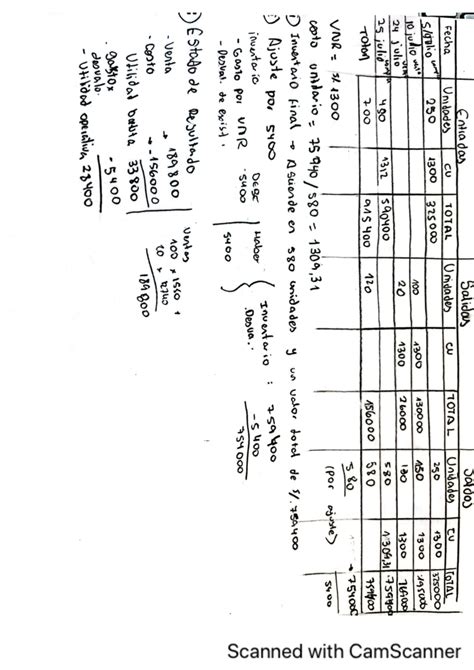 Entradas Salidas Saldos
Fecha Unidades CU TOTAL Unidades CU TOTAL Unidades CU TOTAL
5/julio 250 1300 325000 250 1300 325000
10 julio 100 1300 130000 150 1300 195000
24 julio 20 1300 26000 130 1300 169000
25 julio 450 1312 590400 580 1309,31 759400
TOTAL 700 915400 120 156000 580 759400
VNR = 1300 580 (por ajuste) → 754000
5400
costo unitario = 75940/580 = 1309,31
1) Inventario final → Asciende en 580 unidades y un valor total de S/.759400
) Ajuste por 5400
Debe Haber
inventario
- Gasto por VNR 5400
- Desval. de exist. 5400
Inventario : 759400
Desva.: -5400
754000
) Estado de Resultado
- Venta → 189800
- Costo → -156000
Utilidad bruta 33800
- Gastos x desvalo. -5400
- Utilidad operativa 28400
Ventas
100 x 1560 +
189800
Scanned with CamScanner